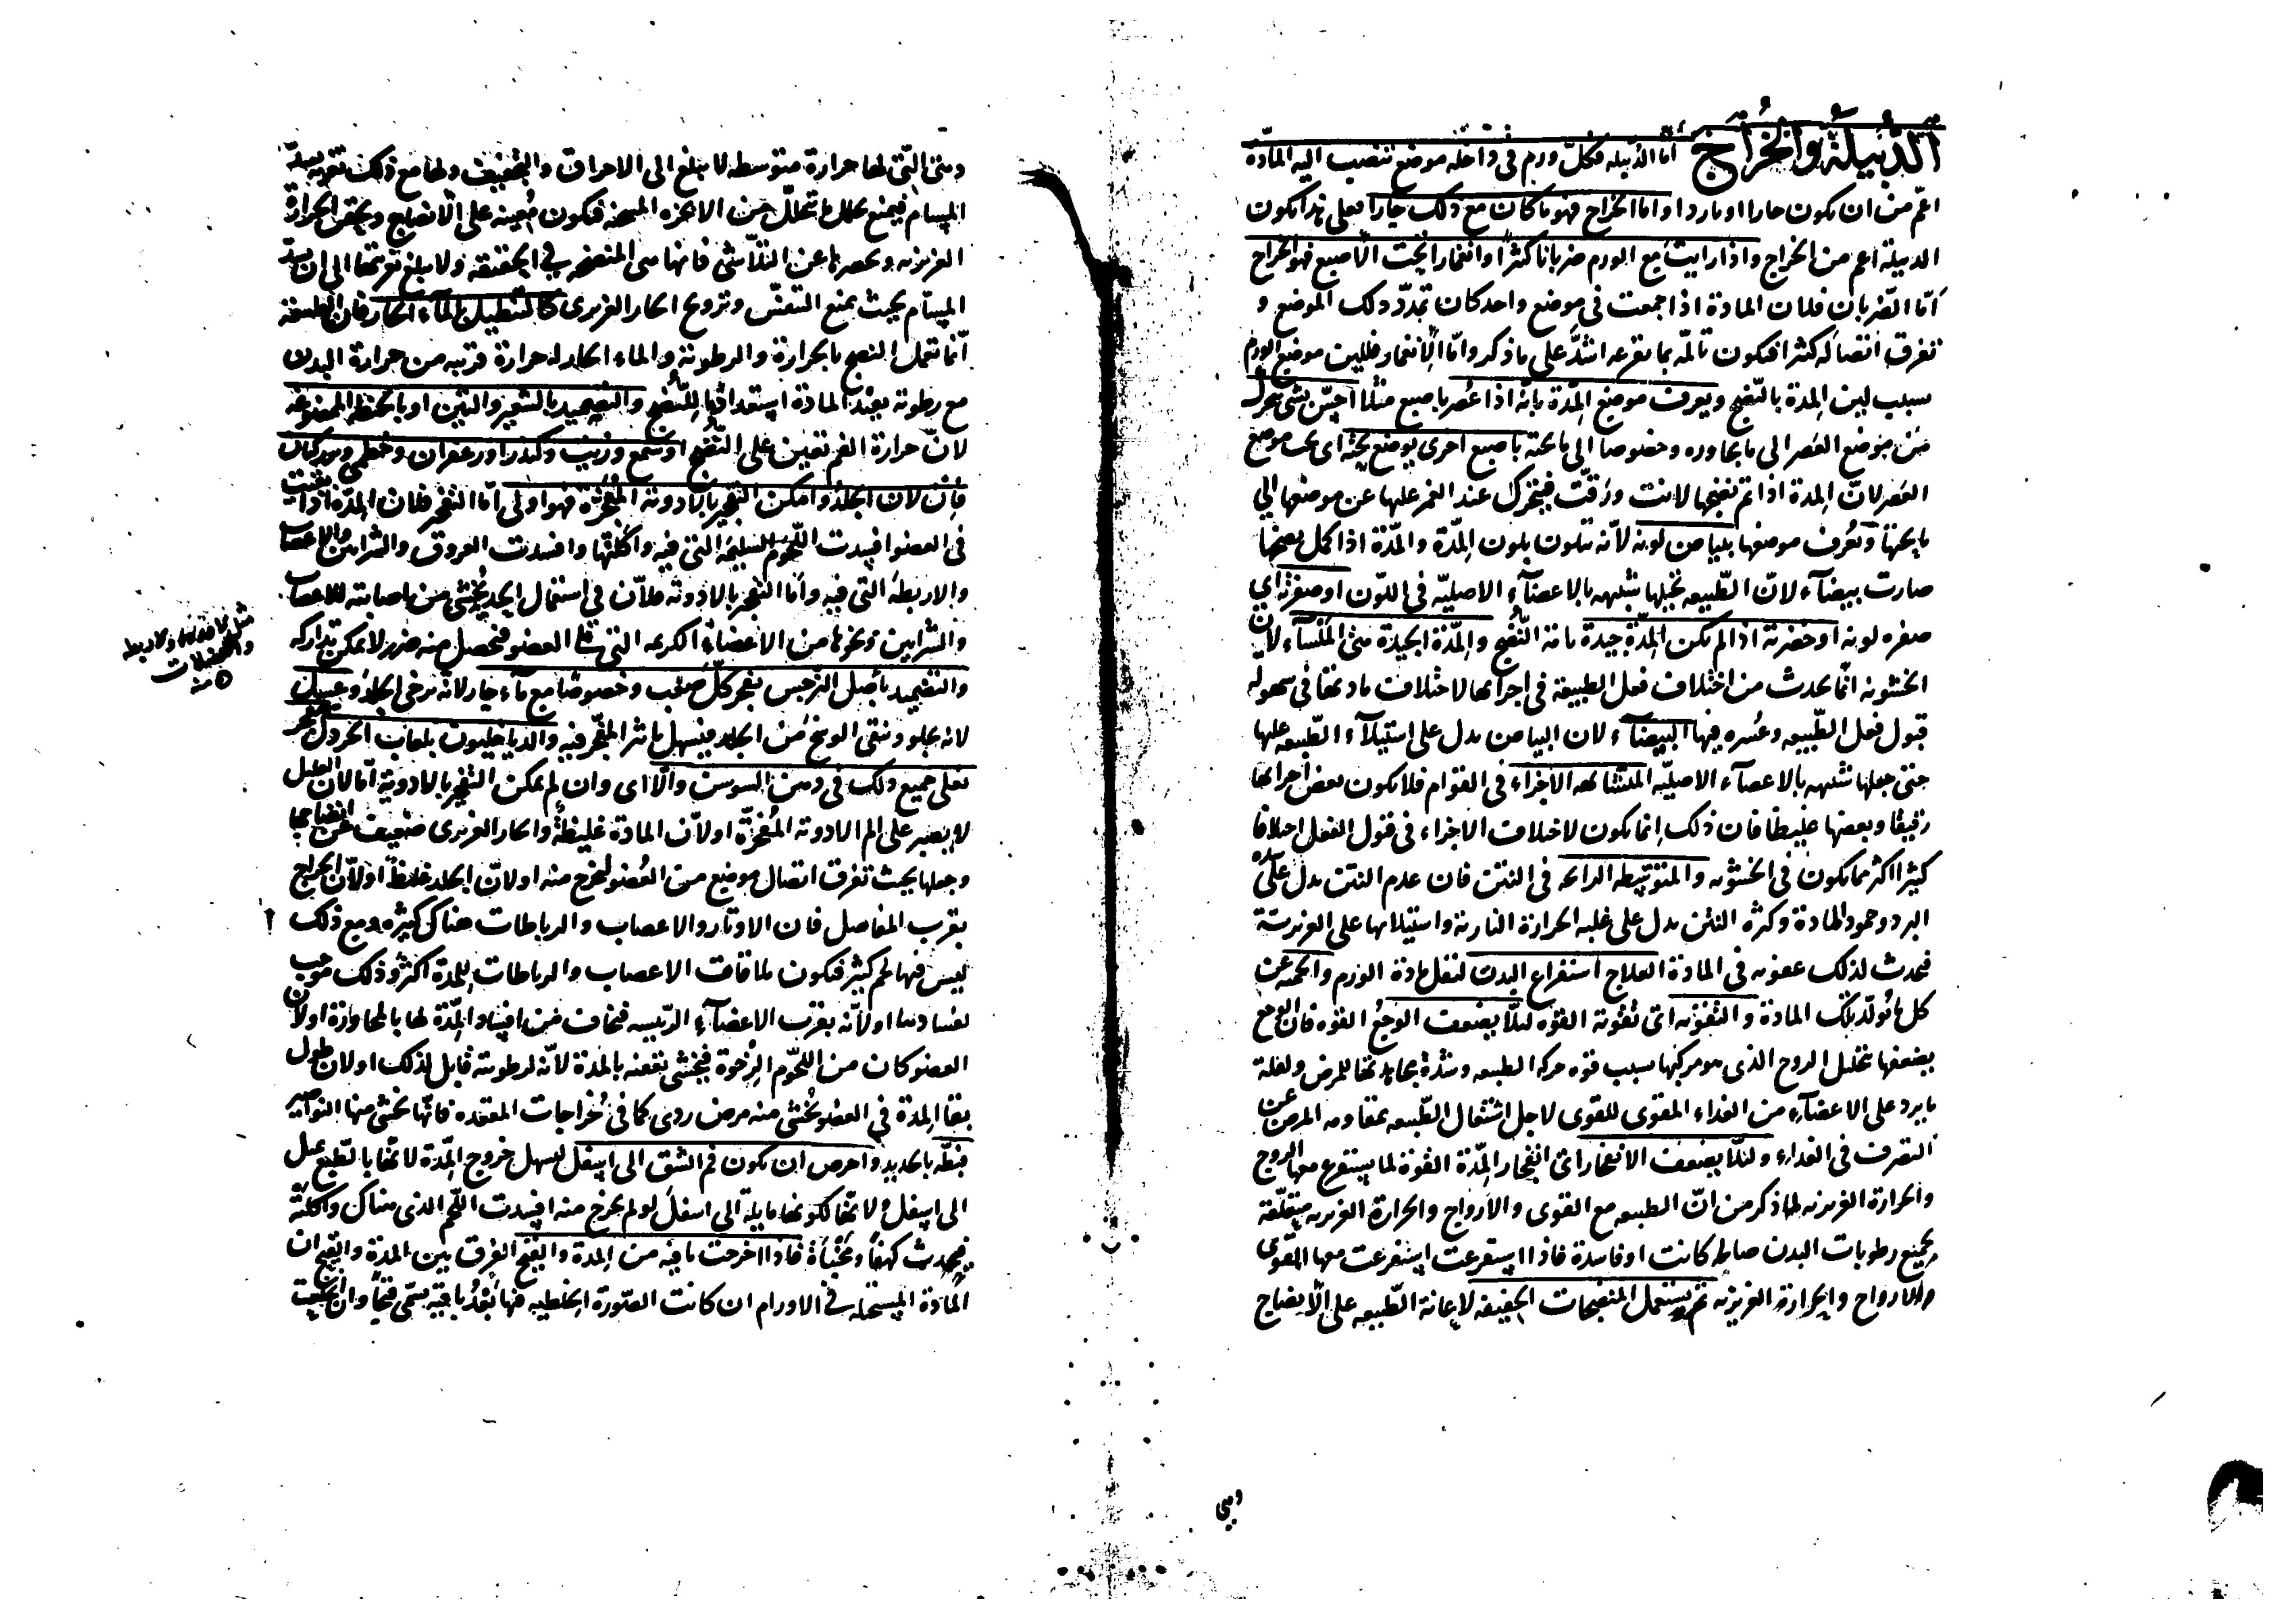 الدبيلة والخراج أما الدبيلة فكل ورم في داخله موضع تنصب اليه المادة
اعم من ان يكون حارا او باردا واما الخراج فهو ما كان مع ذلك حارا فعلى هذا يكون
الدبيلة اعم من الخراج واذا رايت مع الورم ضربانا كثيرا وانغمارا تحت الاصبع فهو الخراج
أما الضربان فلان المادة اذا جمعت في موضع واحد كان تمدد ذلك الموضع و
تفرق اتصاله كثيرا فيكون تالمه بما يقرعه اشد على ما ذكر واما الانغمار فللين موضع الورم
بسبب لين المدة بالنضج ويعرف موضع المدة بانه اذا عصر باصبع مثلا احس بشئ يتحرك
من موضع العصر الى ما يجاوره وخصوصا الى ما تحته باصبع اخرى يوضع تحته اى تحت موضع
العصر لان المدة اذا تم نضجها لانت ورقت فيتحرك عند الغمز عليها عن موضعها الى
ما تحتها وتعرف موضعها ببياض لونه لانه يتلون بلون المدة والمدة اذا كمل نضجها
صارت بيضاء لان الطبيعه تحيلها شبيهه بالاعضاء الاصليه في اللون او صفرته اى
صفره لونه او خضرته اذا لم تكن المدة جيدة تامة النضج والمدة الجيدة هى الملساء لان
الخشونه انما تحدث من اختلاف فعل الطبيعة في اجزائها لاختلاف مادتها في سهوله
قبول فعل الطبيعه وعسره فيها البيضاء لان البياض يدل على استيلاء الطبيعه عليها
حتى جعلها شبيهه بالاعضاء الاصليه المتشابهه الاجزاء في القوام فلا يكون بعض اجزائها
رقيقا وبعضها غليظا فان ذلك انما يكون لاختلاف الاجزاء في قبول الفعل اختلافا
كثيرا اكثر مما يكون في الخشونه والمتوسطه الرائحه في النتن فان عدم النتن يدل على شدة
البرد وجمود المادة وكثرة النتن يدل على غلبه الحرارة النارية واستيلائها على الغريزية
فيحدث لذلك عفونه في المادة العلاج استفراغ البدن لتقل مادة الورم والحميه عن
كل ما يولد تلك المادة والتقويه اى تقوية القوه لئلا يضعف الوجع القوه فان الوجع
يضعفها بتحليل الروح الذى هو مركبها بسبب قوه حركه الطبيعه وشدة مجاهدتها للمرض ولقلة
ما يرد على الاعضاء من الغذاء المقوى للقوى لاجل اشتغال الطبيعه بمقاومه المرض عن
التصرف في الغذاء ولئلا يضعف الانفجار اى انفجار المدة القوة لما يستفرغ معها الروح
والحرارة الغريزيه لما ذكر من ان الطبيعه مع القوى والارواح والحرارة الغريزيه متعلقة
بجميع رطوبات البدن صالحه كانت او فاسدة فاذا استفرغت استفرغت معها القوى
والارواح والحرارة الغريزيه ثم يستعمل المنضجات الخفيفه لاعانة الطبيعه على الانضاج
وهى
وهى التى لها حرارة متوسطه لا يبلغ الى الاحراق والتجفيف ولها مع ذلك تغريه يسد
المسام فيمنع تحلل ما يتحلل من الابخره المسخنه فيكون معينه على الانضاج ويحقن الحرارة
الغريزيه ويحصرها عن التلاشى فانها هى المنضجه في الحقيقه ولا يبلغ تغريتها الى ان يسد
المسام بحيث يمنع التنفس وترويح الحار الغريزى كالتنطيل بالماء الحار فان الطبيعة
انما تعمل النضج بالحرارة والرطوبة والماء الحار له حرارة قريبه من حرارة البدن
مع رطوبة يفيد المادة استعدادا للنضج والتضميد بالشعير والتين او بالحنطه الممضوغه
لان حرارة الفم تعين على النضج او شمع وزيت وكندر او زعفران وخطمى وبزر كتان
فان لان الجلد وامكن التفجير بالادوية المفجرة فهو اولى أما التفجير فلان المدة اذا بقيت
في العضو افسدت اللحوم السليمه التى فيه واكلتها وافسدت العروق والشرايين والاعصاب
والاربطة التى فيه واما التفجير بالادوية فلان في استعمال الحديد يخشى من اصابته للاعصاب
والشرايين ونحوها من الاعضاء الكريمه التى في العضو فيحصل منه ضرر لا يمكن تداركه
والتضميد باصل النرجس يفجر كل صلب وخصوصا مع ماء حار لانه يرخى الجلد وعسل
لانه يجلو وينقى الوسخ من الجلد فيسهل تاثير المفجر فيه والدياخليون بلعاب الخردل
تغلى جميع ذلك في دهن السوسن والا اى وان لم يمكن التفجير بالادوية اما لان العليل
لا يصبر على الم الادوية المفجرة او لان المادة غليظة والحار الغريزى ضعيف عن انضاجها
وجعلها بحيث تفرق اتصال موضع من العضو ليخرج منه او لان الجلد غليظ او لان الخراج
بقرب المفاصل فان الاوتار والاعصاب والرباطات هناك كثيره ومع ذلك
ليس فيها لحم كثير فيكون ملاقات الاعصاب والرباطات للمدة اكثر وذلك موجب
لفسادها او لانه بقرب الاعضاء الرئيسه فيخاف من افساد المدة لها بالمجاورة او لان
العضو كان من اللحوم الرخوة فيخشى تعفنه بالمدة لانه لرطوبته قابل لذلك او لان طول
بقاء المدة في العضو يخشى منه مرض ردى كما في خراجات المقعده فانها يخشى منها النواصير
فبطه بالحديد واحرص ان يكون فم الشق الى اسفل ليسهل خروج المدة لانها بالطبع يميل
الى اسفل ولانها لكونها مايلة الى اسفل لو لم يخرج منه افسدت اللحم الذى هناك واكلته
فيحدث كهفا ومخبأة فاذا اخرجت ما فيه من المدة والقيح الفرق بين المدة والقيح ان
المادة المستحيله في الاورام ان كانت الصورة الخلطيه فيها بعد باقيه تسمى قيحا وان
مثل الاوتار والاربطه
والعضلات
منه